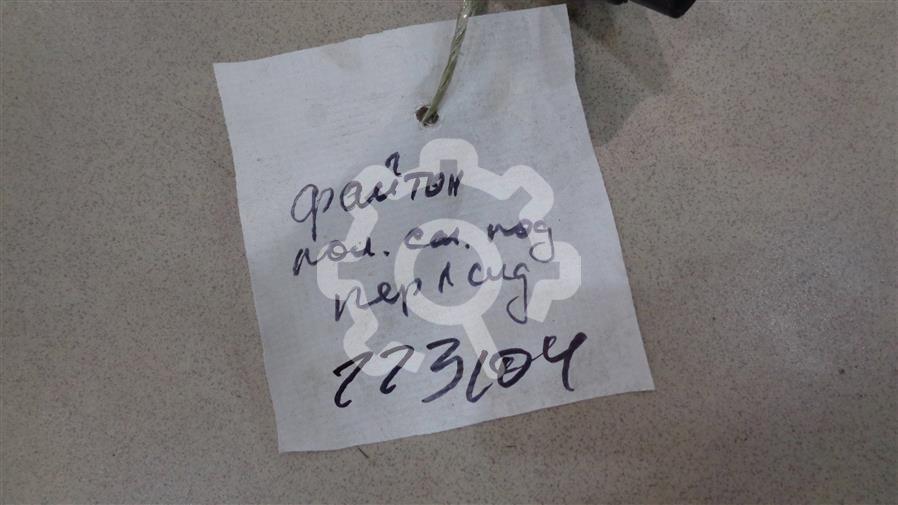 файтон
пол. см. под
пер л сид
223104